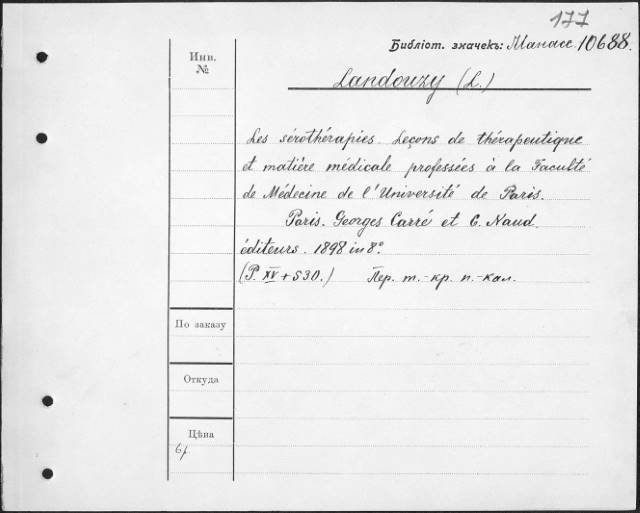 177
Библіот. значекъ: Манасс. 10688.
Инв.
№
Landouzy (L.)
Les sérothérapies. Leçons de thérapeutique
et matière médicale professées à la Faculté
de Médecine de l'Université de Paris.
Paris. Georges Carré et C. Naud.
éditeurs. 1898 in 8°.
(P. XV + 530.) Пер. т.-кр. п.-кал.
По заказу
Откуда
Цѣна
6р.